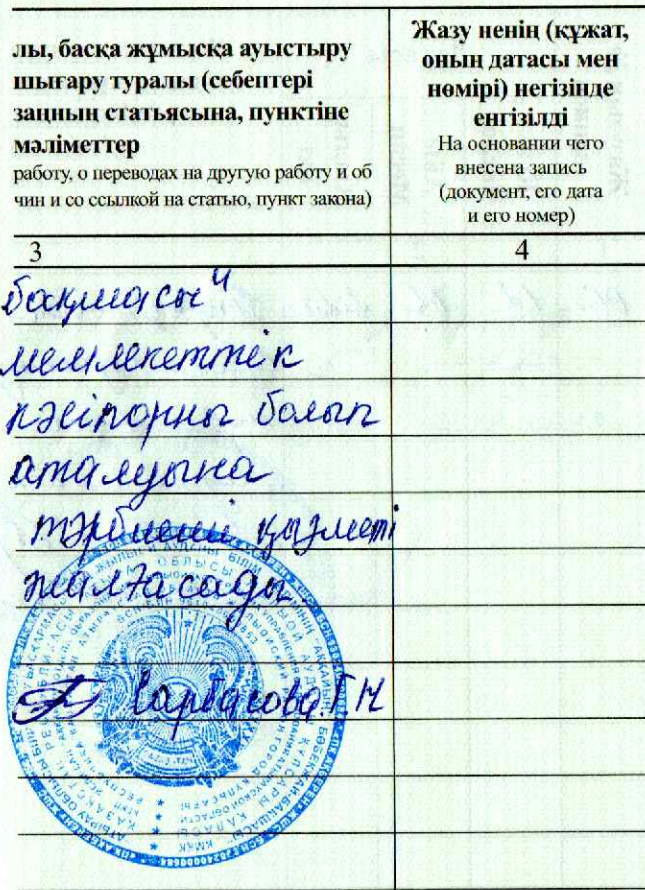 лы, басқа жұмысқа ауыстыру
шығару туралы (себептері
заңның статьясына, пунктіне
мәліметтер
работу, о переводах на другую работу и об
чин и со ссылкой на статью, пункт закона)
Жазу ненің (құжат,
оның датасы мен
нөмірі) негізінде
енгізілді
На основании чего
внесена запись
(документ, его дата
и его номер)
3
4
бақшасы"
мемлекеттік
кәсіпорны болып
аталуына
тәрбиеші қызметі
жалғасады.
Сарбасова.Г.Н